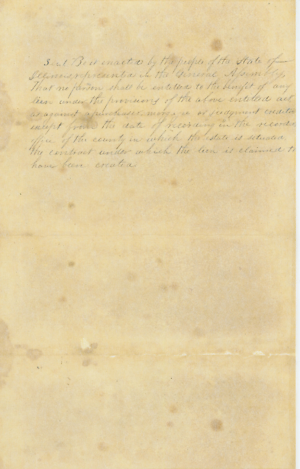 Sec 1 Be it enacted by the people of the State of
Illinois represented in the General Assembly
That no person shall be entitled to the benefit of any
lien under the provisions of the above entitled act
as against a purchaser or judgment creditor
except from the date of recording in the recorders
office of the county in which the estate is situated
the contract under which the lien is claimed to
have been created